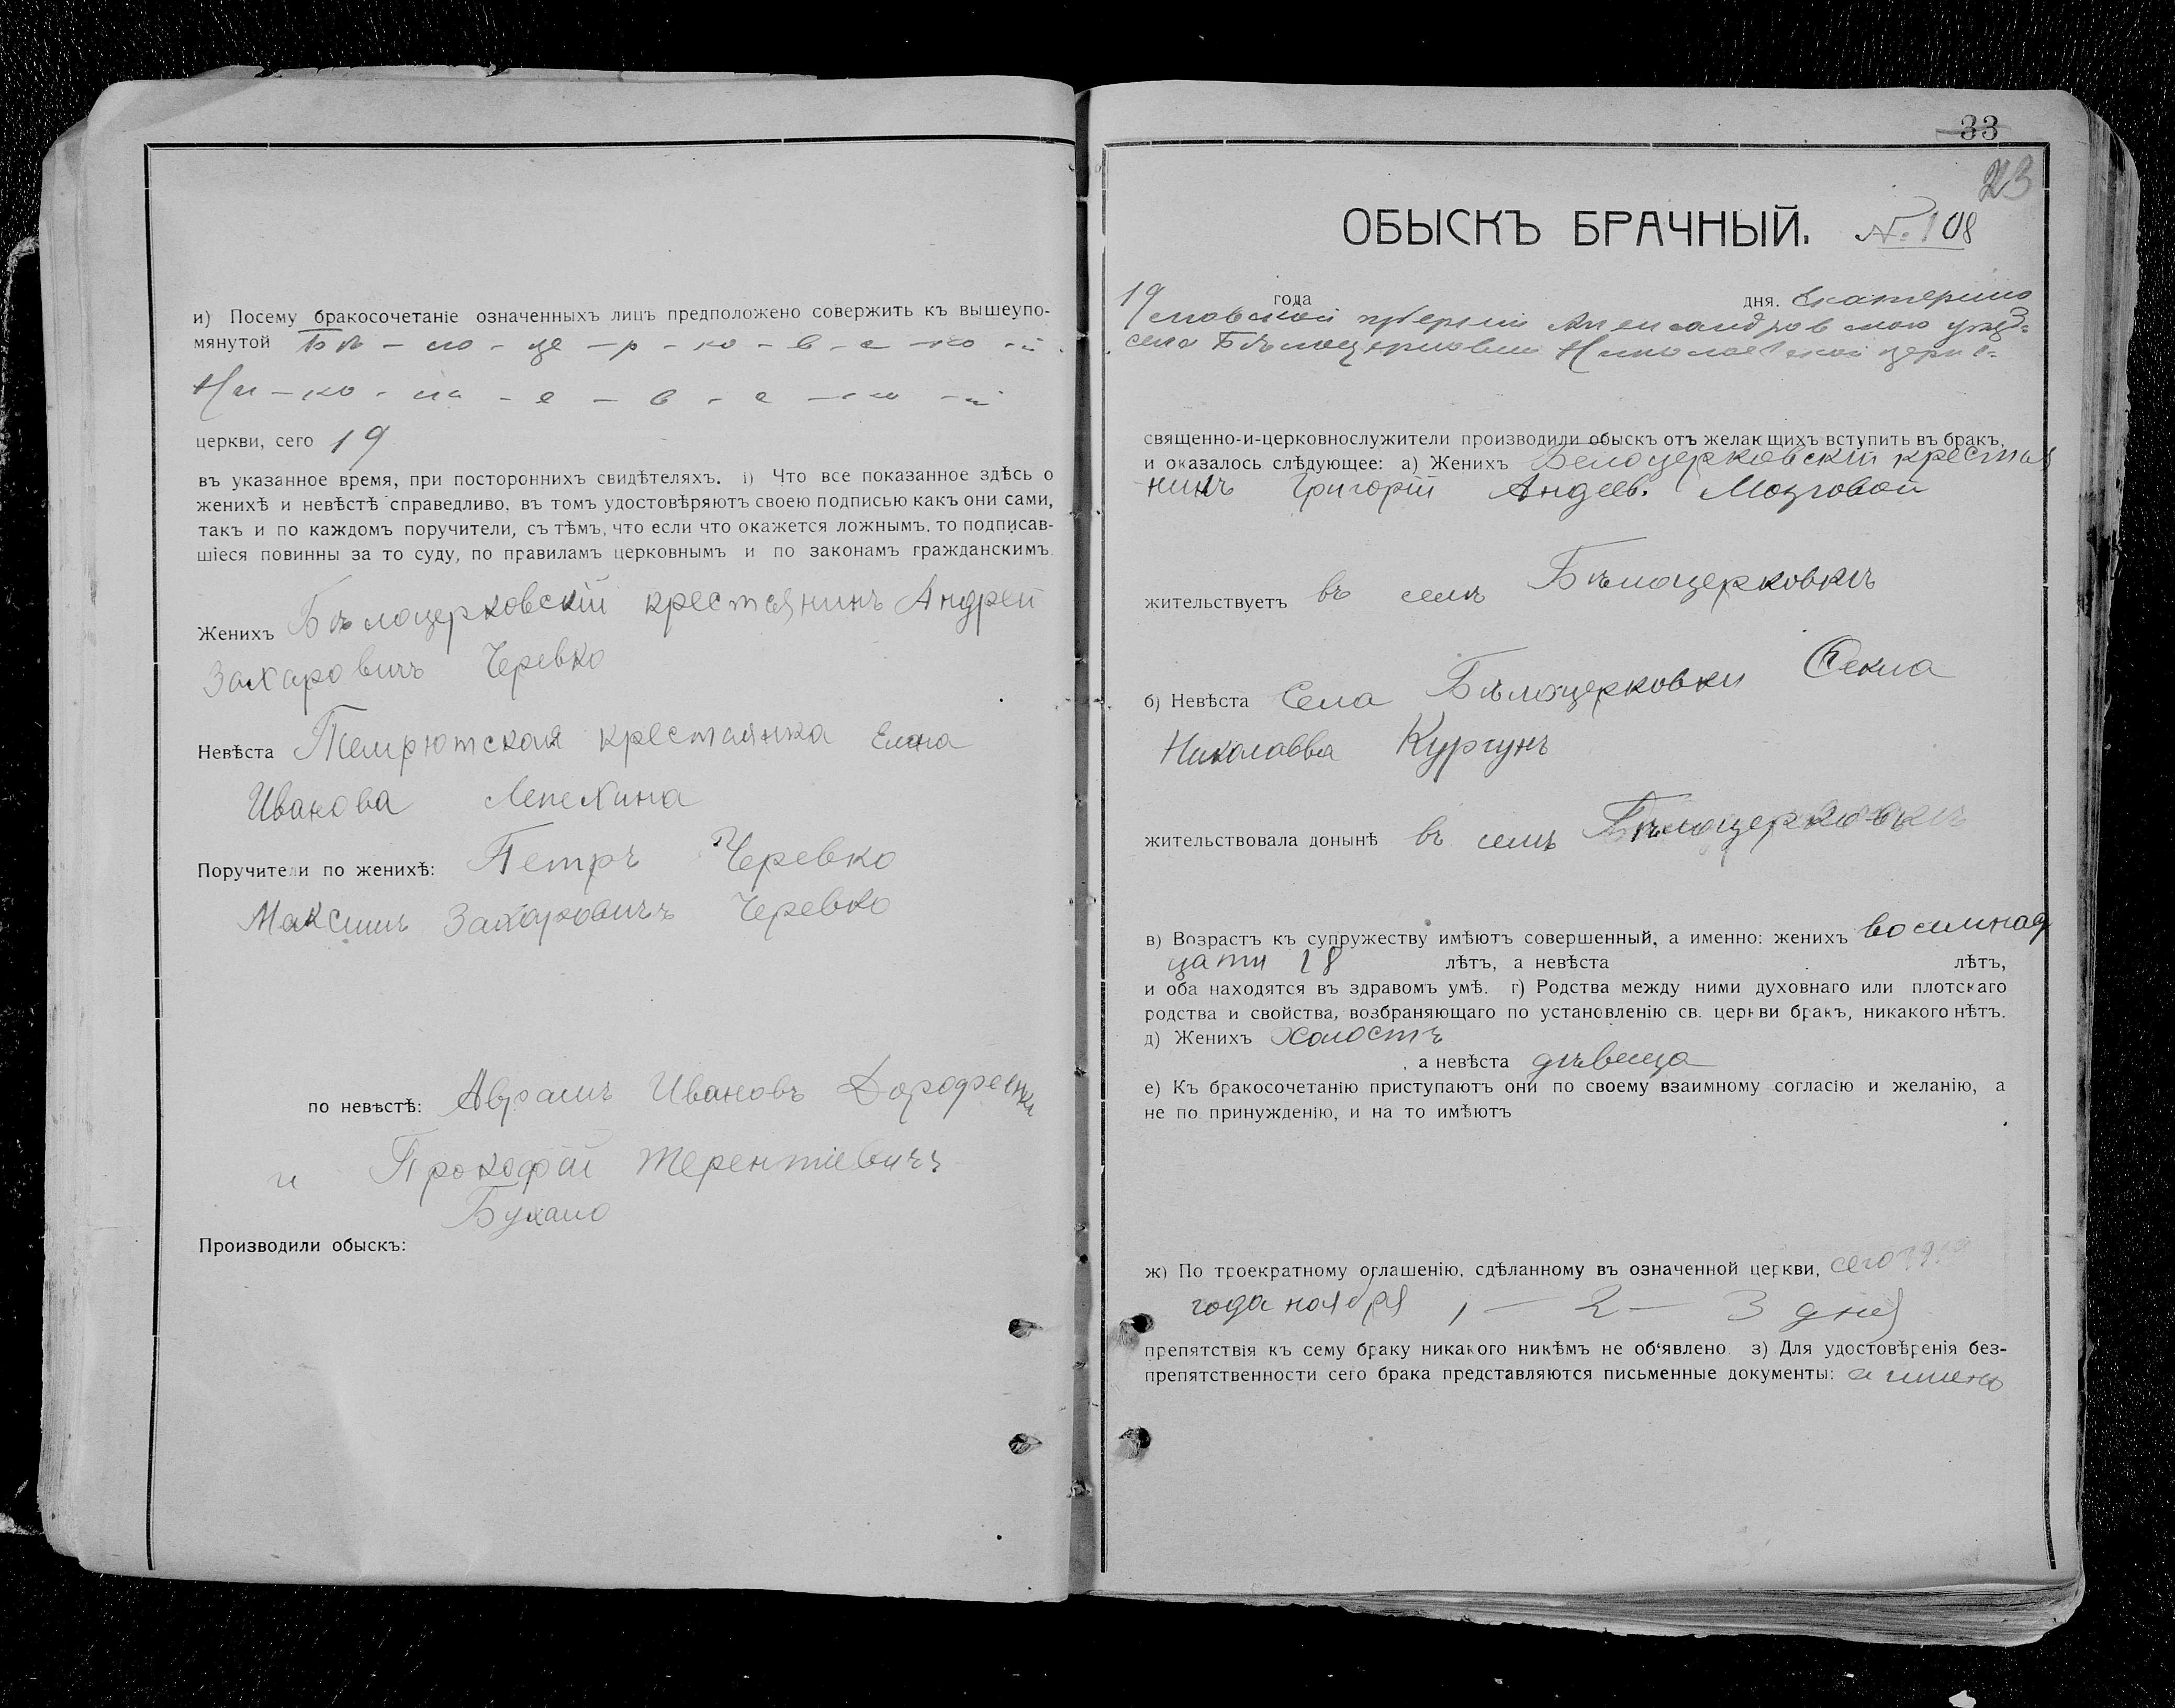 и) Посему бракосочетаніе означенныхъ лицъ предположено совержить къ вышеупо-
мянутой Бѣ - ло - це - р - ко - в - с - ко - й
Ни - ко - ла - е - в - с - ко - й
церкви, сего 19
въ указанное время, при постороннихъ свидѣтеляхъ. і) Что все показанное здѣсь о
женихѣ и невѣстѣ справедливо, въ томъ удостовѣряютъ своею подписью какъ они сами,
такъ и по каждомъ поручители, съ тѣмъ, что если что окажется ложнымъ, то подписав-
шіеся повинны за то суду, по правиламъ церковнымъ и по законамъ гражданскимъ.
Женихъ Бѣлоцерковскій крестьянинъ Андрей
Захаровичъ Черевко
Невѣста Темрютская крестьянка Елена
Иванова Лепехина
Поручители по женихѣ: Петръ Черевко
Максимъ Захаровичъ Черевко
по невѣстѣ: Аврамъ Ивановъ Дорофеенко
и Прокофій Терентіевичъ
Бухало
Производили обыскъ:
33
23
ОБЫСКЪ БРАЧНЫЙ. № 108
19 года дня. Екатерино
славской губерніи Александровскаго уѣзд-
села Бѣлоцерковки Николаевской церкв-
священно-и-церковнослужители производили обыскъ отъ желающихъ вступить въ бракъ,
и оказалось слѣдующее: а) Женихъ Белоцерковскій крестья
нинъ Григорій Андеев. Мозговой
жительствуетъ въ селѣ Бѣлоцерковкѣ
б) Невѣста Села Бѣлоцерковки Ѳекла
Николавва Кургунъ
жительствовала донынѣ въ селѣ Бѣлоцерковкѣ
в) Возрастъ къ супружеству имѣютъ совершенный, а именно: женихъ восимнад
цати 18 лѣтъ, а невѣста лѣтъ,
и оба находятся въ здравомъ умѣ. г) Родства между ними духовнаго или плотскаго
родства и свойства, возбраняющаго по установленію св. церкви бракъ, никакого нѣтъ.
д) Женихъ холостъ
, а невѣста дѣвица
е) Къ бракосочетанію приступаютъ они по своему взаимному согласію и желанію, а
не по принужденію, и на то имѣютъ
ж) По троекратному оглашенію, сдѣланному въ означенной церкви, сего
года ноября 1 — 2 — 3 дня
препятствія къ сему браку никакого никѣмъ не об‘явлено з) Для удостовѣренія без-
препятственности сего брака представляются письменные документы: а именно